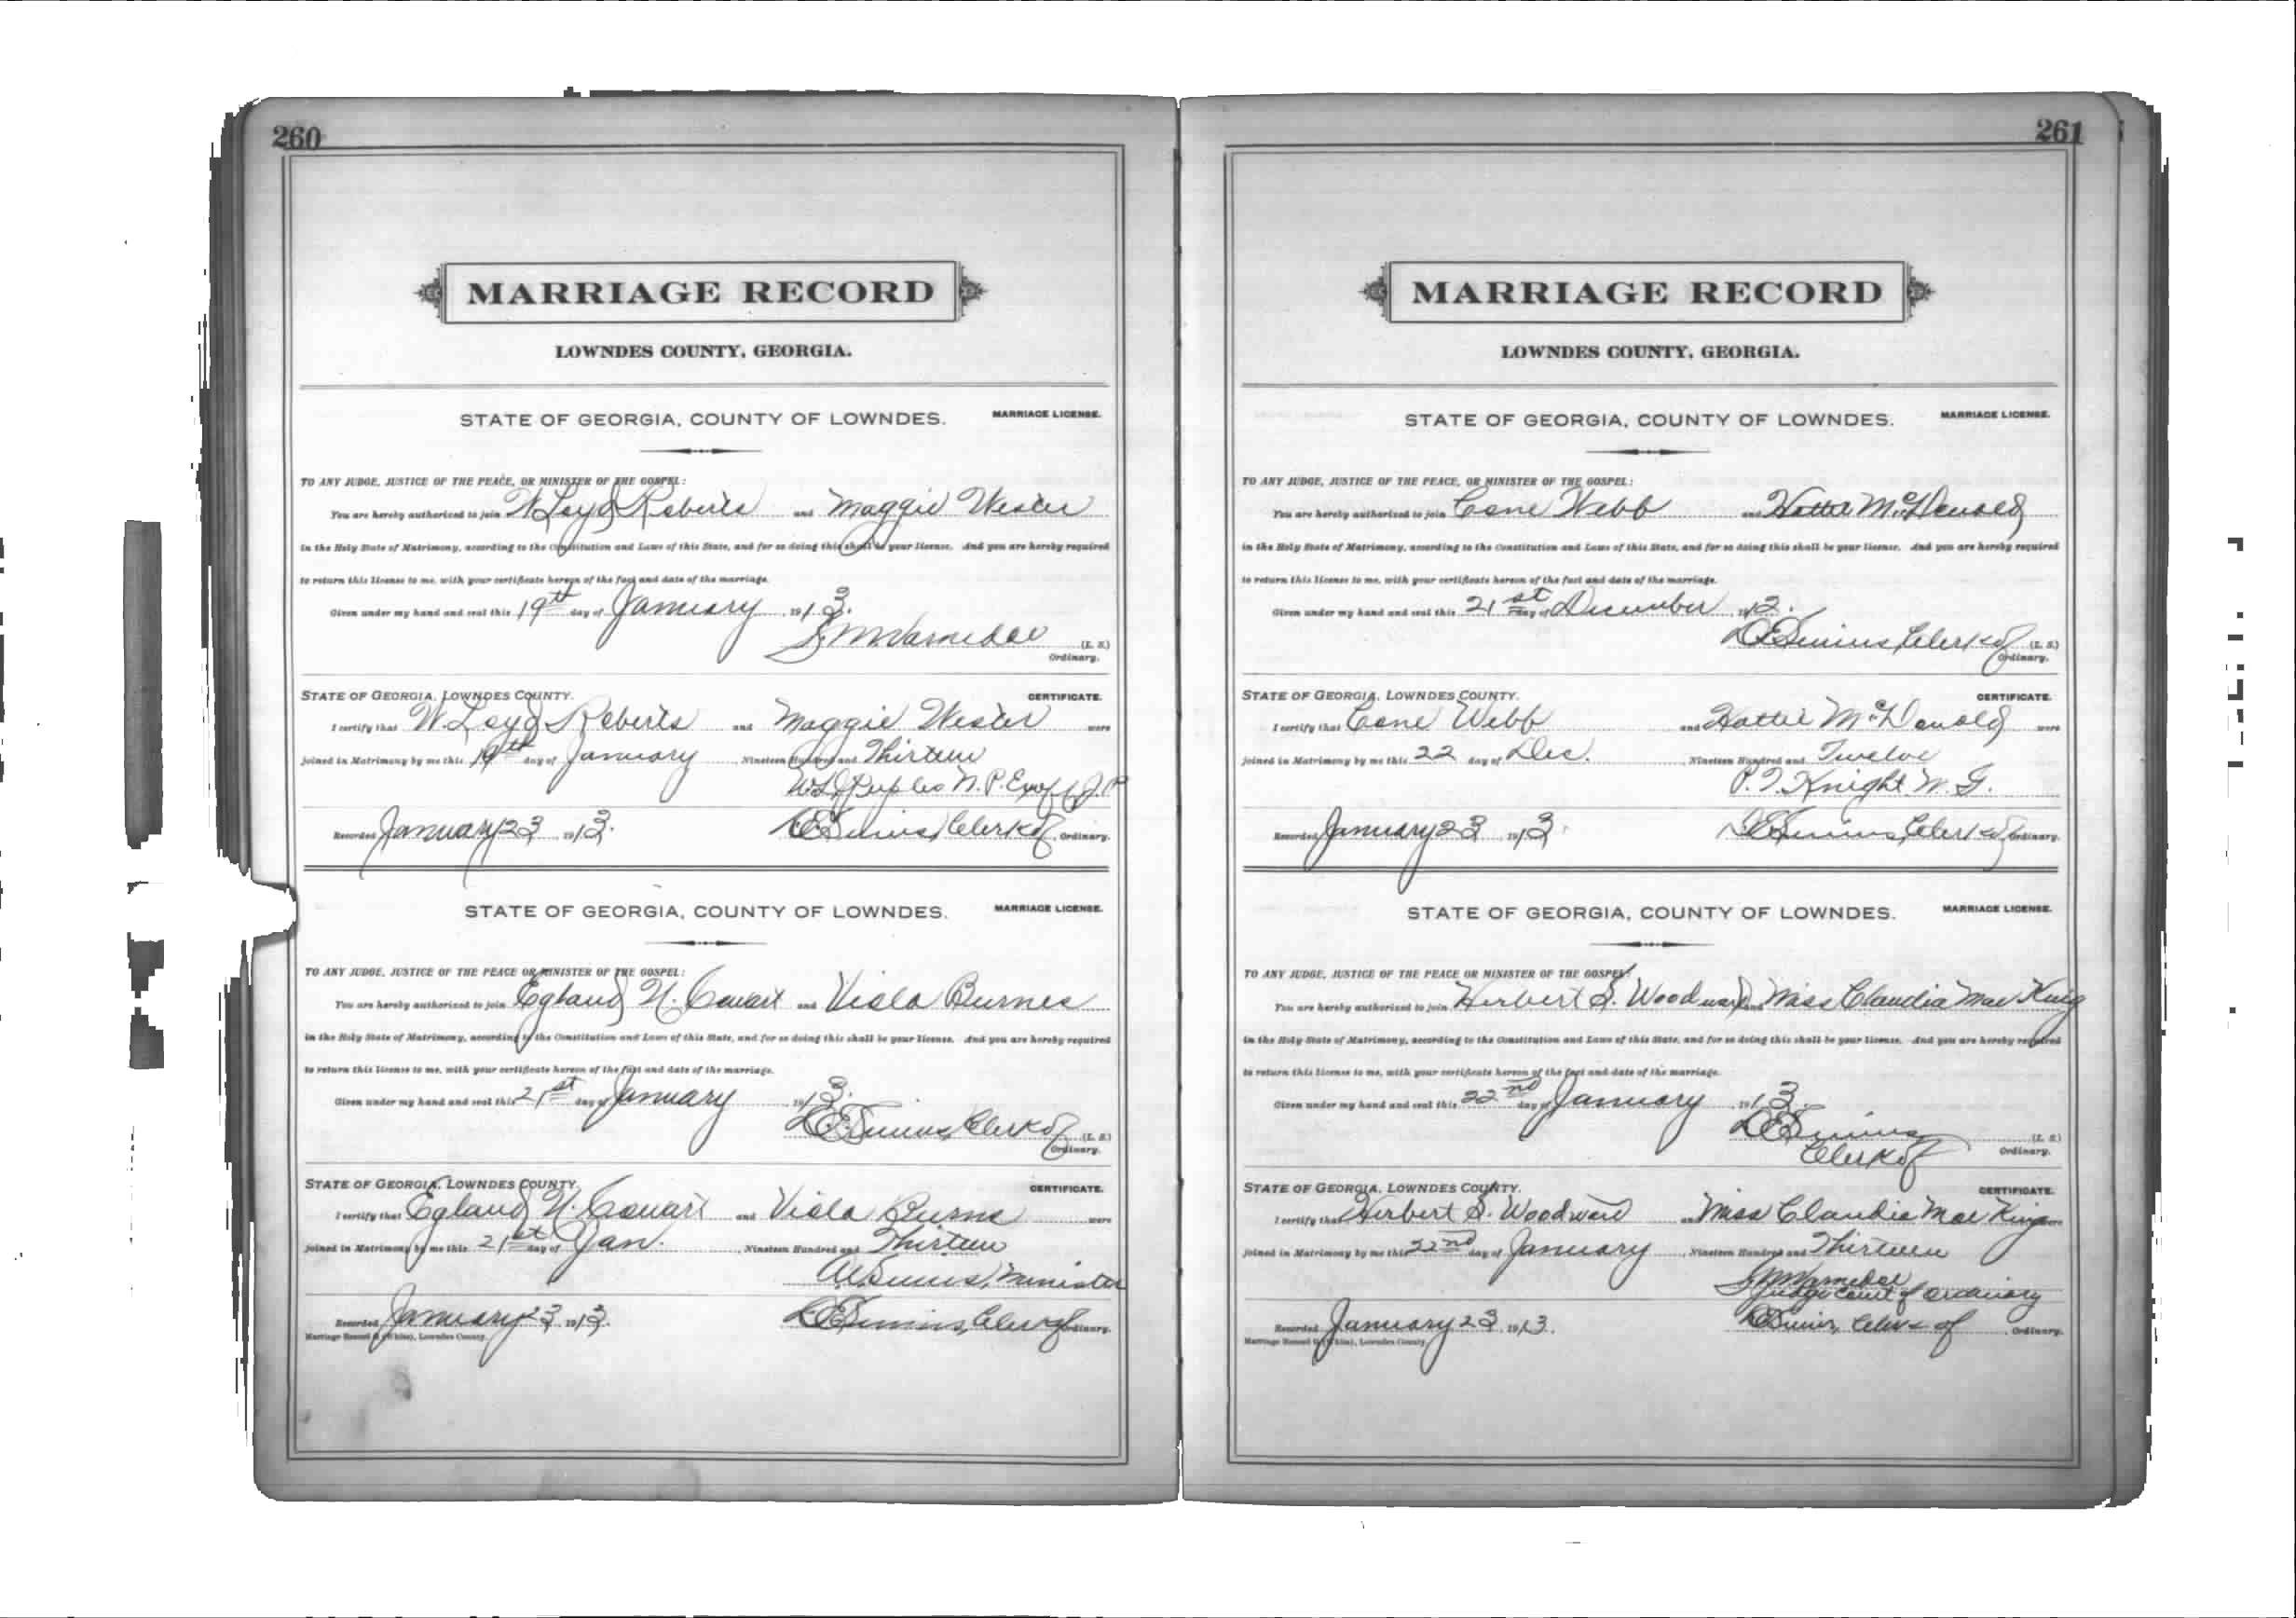 260
MARRIAGE RECORD
LOWNDES COUNTY, GEORGIA.
STATE OF GEORGIA, COUNTY OF LOWNDES. MARRIAGE LICENSE.
TO ANY JUDGE, JUSTICE OF THE PEACE, OR MINISTER OF THE GOSPEL:
You are hereby authorized to join W. Loyd Roberts and Maggie Wester
in the Holy State of Matrimony, according to the Constitution and Laws of this State, and for so doing this shall be your license. And you are hereby required
to return this license to me, with your certificate hereon of the fact and date of the marriage.
Given under my hand and seal this 19th day of January 1913.
(L. S.)
Ordinary.
STATE OF GEORGIA, LOWNDES COUNTY. CERTIFICATE.
I certify that W. Loyd Roberts and Maggie Wester were
joined in Matrimony by me this 19th day of January, Nineteen Hundred and Thirteen
W. L. Peeples N.P. Exoff J.P
Recorded January 23 1913. Clerk of Ordinary.
STATE OF GEORGIA, COUNTY OF LOWNDES. MARRIAGE LICENSE.
TO ANY JUDGE, JUSTICE OF THE PEACE OR MINISTER OF THE GOSPEL:
You are hereby authorized to join Egland N. Cowart and Viola Burnes
in the Holy State of Matrimony, according to the Constitution and Laws of this State, and for so doing this shall be your license. And you are hereby required
to return this license to me, with your certificate hereon of the fact and date of the marriage.
Given under my hand and seal this 21st day of January 1913.
Clerk of (L. S.)
Ordinary.
STATE OF GEORGIA, LOWNDES COUNTY. CERTIFICATE.
I certify that Egland N. Cowart and Viola Burns were
joined in Matrimony by me this 21st day of Jan., Nineteen Hundred and Thirteen
Minister
Recorded January 23 1913. Clerk of Ordinary.
Marriage Record G (White), Lowndes County.
261
MARRIAGE RECORD
LOWNDES COUNTY, GEORGIA.
STATE OF GEORGIA, COUNTY OF LOWNDES. MARRIAGE LICENSE.
TO ANY JUDGE, JUSTICE OF THE PEACE, OR MINISTER OF THE GOSPEL:
You are hereby authorized to join Cone Webb and Hattie McDonald
in the Holy State of Matrimony, according to the Constitution and Laws of this State, and for so doing this shall be your license. And you are hereby required
to return this license to me, with your certificate hereon of the fact and date of the marriage.
Given under my hand and seal this 21st day of December 1912.
Clerk of (L. S.)
Ordinary.
STATE OF GEORGIA, LOWNDES COUNTY. CERTIFICATE.
I certify that Cone Webb and Hattie McDonald were
joined in Matrimony by me this 22 day of Dec., Nineteen Hundred and Twelve
P. T. Knight M. G.
Recorded January 23 1913. Clerk of Ordinary.
STATE OF GEORGIA, COUNTY OF LOWNDES. MARRIAGE LICENSE.
TO ANY JUDGE, JUSTICE OF THE PEACE OR MINISTER OF THE GOSPEL:
You are hereby authorized to join Herbert S. Woodward and Miss Claudia Mae King
in the Holy State of Matrimony, according to the Constitution and Laws of this State, and for so doing this shall be your license. And you are hereby required
to return this license to me, with your certificate hereon of the fact and date of the marriage.
Given under my hand and seal this 22nd day of January 1913.
(L. S.)
Clerk of Ordinary.
STATE OF GEORGIA, LOWNDES COUNTY. CERTIFICATE.
I certify that Herbert S. Woodward and Miss Claudia Mae King were
joined in Matrimony by me this 22nd day of January, Nineteen Hundred and Thirteen
Judge Court of Ordinary
Recorded January 23 1913. Clerk of Ordinary.
Marriage Record G (White), Lowndes County